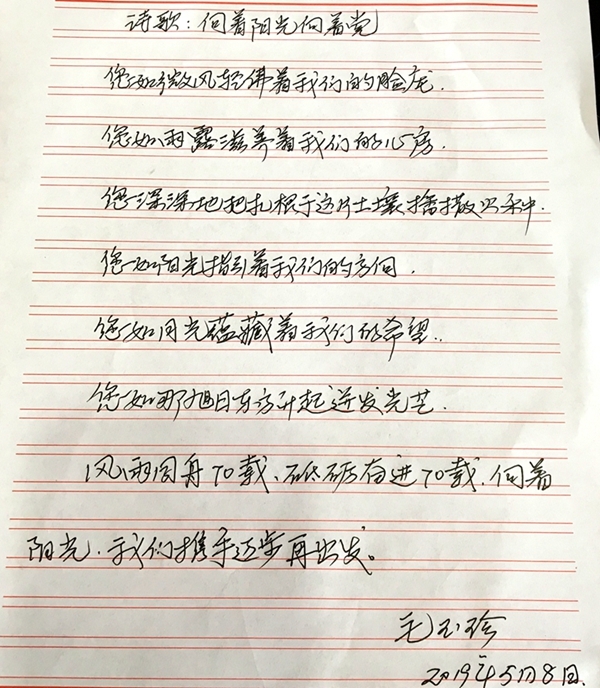 诗歌：向着阳光向着党
您如微风轻佛着我们的脸庞.
您如雨露滋养着我们的心房.
您深深地把扎根于这片土壤播撒
您如阳光指引着我们的方向.
您如月光蕴藏着我们的希望..
您如那旭日东方升起迸发光芒.
风雨同舟70载、砥砺奋进70载.向着
阳光.我们携手迈步再出发。
毛玉珍
2019年5月8日.